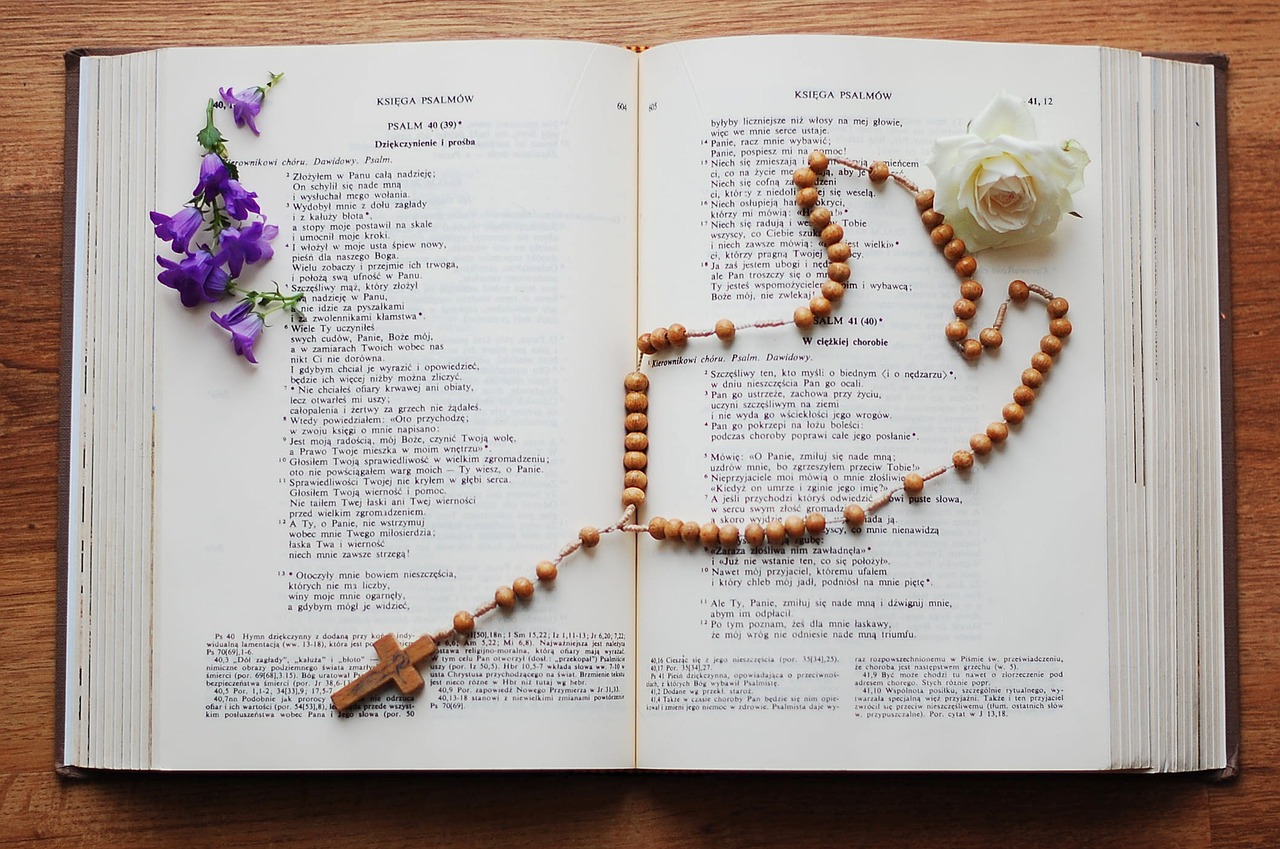 KSIĘGA PSALMÓW
604
PSALM 40 (39)*
Dziękczynienie i prośba
Kierownikowi chóru. Dawidowy. Psalm.
2 Złożyłem w Panu całą nadzieję;
On schylił się nade mną
i wysłuchał mego wołania.
3 Wydobył mnie z dołu zagłady
i z kałuży błota*,
a stopy moje postawił na skale
i umocnił moje kroki.
4 I włożył w moje usta śpiew nowy,
pieśń dla naszego Boga.
Wielu zobaczy i przejmie ich trwoga,
i położą swą ufność w Panu.
Szczęśliwy mąż, który złożył
nadzieję w Panu,
nie idzie za pyszałkami
i za zwolennikami kłamstwa*.
6 Wiele Ty uczyniłeś
swych cudów, Panie, Boże mój,
a w zamiarach Twoich wobec nas
nikt Ci nie dorówna.
I gdybym chciał je wyrazić i opowiedzieć,
będzie ich więcej niżby można zliczyć.
7 * Nie chciałeś ofiary krwawej ani obiaty,
lecz otwarłeś mi uszy;
całopalenia i żertwy za grzech nie żądałeś.
8 Wtedy powiedziałem: «Oto przychodzę;
w zwoju księgi o mnie napisano:
9 Jest moją radością, mój Boże, czynić Twoją wolę,
a Prawo Twoje mieszka w moim wnętrzu»*.
10 Głosiłem Twoją sprawiedliwość w wielkim zgromadzeniu;
oto nie powściągałem warg moich — Ty wiesz, o Panie.
11 Sprawiedliwości Twojej nie kryłem w głębi serca.
Głosiłem Twoją wierność i pomoc.
Nie taiłem Twej łaski ani Twej wierności
przed wielkim zgromadzeniem.
12 A Ty, o Panie, nie wstrzymuj
wobec mnie Twego miłosierdzia;
łaska Twa i wierność
niech mnie zawsze strzegą!
13 * Otoczyły mnie bowiem nieszczęścia,
których nie ma liczby,
winy moje mnie ogarnęły,
a gdybym mógł je widzieć,
Ps 40 Hymn dziękczynny z dodaną przy końcu indy-
widualną lamentacją (ww. 13-18), która jest
Ps 70[69],1-6.
40,3 „Dół zagłady”, „kałuża” i „błoto”
nimiczne obrazy podziemnego świata
śmierci (por. 69[68],3.15). Bóg
bezpieczeństwa śmierci (por. Jr 38,6-
40,5 Por. 1,1-2, 34[33],9; 17,5-7
40,7nn Podobnie jak prorocy
ofiar i ich wartości (por. 54[53],8), przede wszyst-
kim posłuszeństwo wobec Pana i Jego słowa (por. 50
[50],18n; 1 Sm 15,22; Iz 1,11-13; Jr 6,20; 7,22;
6,6; Am 5,22; Mi 6,8). Najważniejsza jest należyta
postawa religijno-moralna, którą ofiary mają wyrażać.
W tym celu Pan otworzył (dosł.: „przekopał”) Psalmiście
uszy (por. Iz 50,5). Hbr 10,5-7 wkłada słowa ww. 7-10 w
usta Chrystusa przychodzącego na świat. Brzmienie tekstu
jest nieco różne w Hbr niż tutaj wg hebr.
40,9 Por. zapowiedź Nowego Przymierza w Jr 31,31.
40,13-18 stanowi z niewielkimi zmianami powtórzenie
Ps 70[69].
605
KSIĘGA PSALMÓW
41, 12
byłyby liczniejsze niż włosy na mej głowie,
więc we mnie serce ustaje.
14 Panie, racz mnie wybawić;
Panie, pospiesz mi na pomoc!
15 Niech się zmieszają i
ci, co na życie aby je
Niech się cofną
ci, którzy z niedoli się weselą.
16 Niech osłupieją hańbą okryci,
którzy mi mówią:
17 Niech się radują i weselą w Tobie
wszyscy, co Ciebie
i niech zawsze mówią: jest wielki»*
ci, którzy pragną Twojej
18 Ja zaś jestem ubogi i
ale Pan troszczy się o mnie
Ty jesteś wspomożycielem moim i wybawcą;
Boże mój, nie zwlekaj!
PSALM 41 (40)*
W ciężkiej chorobie
1 Kierownikowi chóru. Psalm. Dawidowy.
2 Szczęśliwy ten, kto myśli o biednym ⟨i o nędzarzu⟩*,
w dniu nieszczęścia Pan go ocali.
3 Pan go ustrzeże, zachowa przy życiu,
uczyni szczęśliwym na ziemi
i nie wyda go wściekłości jego wrogów.
4 Pan go pokrzepi na łożu boleści:
podczas choroby poprawi całe jego posłanie*.
5 Mówię: «O Panie, zmiłuj się nade mną;
uzdrów mnie, bo zgrzeszyłem przeciw Tobie!»
6 Nieprzyjaciele moi mówią o mnie złośliwie:
«Kiedyż on umrze i zginie jego imię?»
7 A jeśli przychodzi ktoś odwiedzić, mówi puste słowa,
w sercu swym złość gromadzi
skoro wyjdzie ją.
co mnie nienawidzą
zgubę:
9 «Zaraza złośliwa nim zawładnęła»*
i «Już nie wstanie ten, co się położył».
10 Nawet mój przyjaciel, któremu ufałem
i który chleb mój jadł, podniósł na mnie piętę*.
11 Ale Ty, Panie, zmiłuj się nade mną i dźwignij mnie,
abym im odpłacił.
12 Po tym poznam, żeś dla mnie łaskawy,
że mój wróg nie odniesie nade mną triumfu.
40,16 Ciesząc się z jego nieszczęścia (por. 35[34],25).
40,17 Por. 35[34],27.
Ps 41 Pieśń dziękczynna, opowiadająca o przeciwnoś-
ciach, z których Bóg wybawił Psalmistę.
41,2 Dodane wg przekł. staroż.
41,4 Także w czasie choroby Pan będzie się nim opie-
kował i zmieni jego niemoc w zdrowie. Psalmista daje wy-
raz rozpowszechnionemu w Piśmie św. przeświadczeniu,
że choroba jest następstwem grzechu (w. 5).
41,9 Być może chodzi tu nawet o złorzeczenie pod
adresem chorego. Stych różnie popr.
41,10 Wspólnota posiłku, szczególnie rytualnego, wy-
twarzała specjalną więź przyjaźni. Także i ten przyjaciel
zwrócił się przeciw nieszczęśliwemu (tłum. ostatnich słów
w. przypuszczalne). Por. cytat w J 13,18.